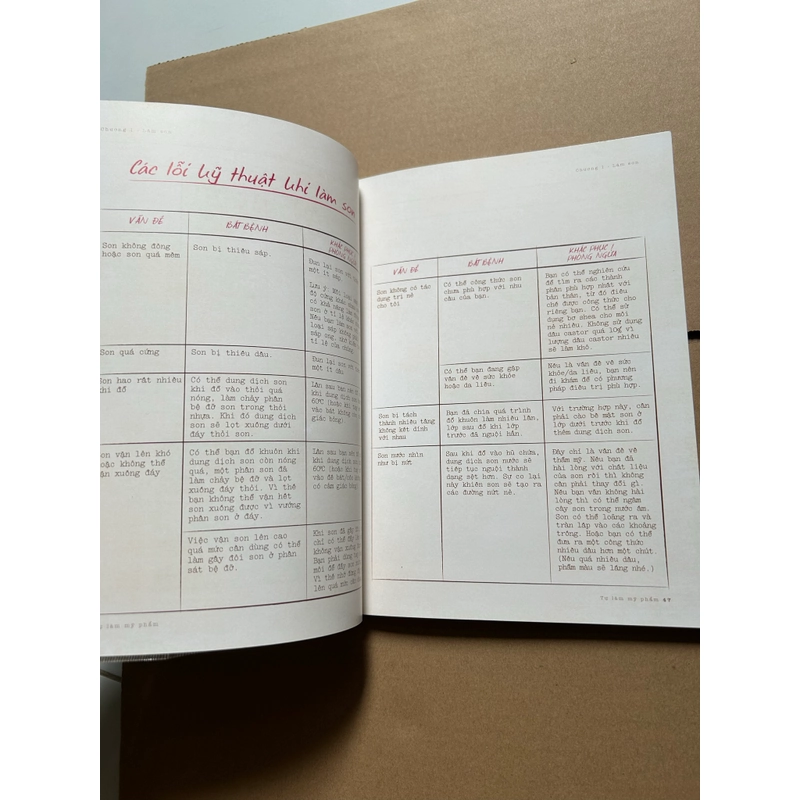 Chương 1 - Làm son
Các lỗi kỹ thuật khi làm son
VẤN ĐỀ
BẮT BỆNH
KHẮC PHỤC /
PHÒNG NGỪA
Son không đông
hoặc son quá mềm
Son bị thiếu sáp.
Đun lại son với
một ít sáp.
Lưu ý: Mỗi
độ cứng khác
có khả năng làm
son ở tỉ lệ
Nếu bạn làm son
loại sáp không
sáp ong, nhớ
tỉ lệ của chúng.
Son quá cứng
Son bị thiếu dầu.
Đun lại son với
một ít dầu.
Son hao rất nhiều
khi đổ
Có thể dung dịch son
khi đổ vào thỏi quá
nóng, làm chảy phần
bệ đỡ son trong thỏi
nhựa. Khi đó dung dịch
son sẽ lọt xuống dưới
đáy thỏi son.
Lần sau bạn
khi dung dịch son
60°C (hoặc khi
vào bát không
giáo hóng).
Son vặn lên khó
hoặc không thể
vặn xuống đáy
Có thể bạn đổ khuôn khi
dung dịch son còn nóng
quá, một phần son đã
làm chảy bệ đỡ và lọt
xuống đáy thỏi. Vì thế
bạn không thể vặn hết
son xuống được vì vướng
phần son ở đáy.
Lần sau bạn
khi dung dịch
60°C (hoặc khi
đế bát/bên
có cảm giác nóng).
Việc vặn son lên cao
quá mức cần dùng có thể
làm gãy đôi son ở phần
sát bệ đỡ.
Khi son đã gãy
chỉ có thể đẩy
không vặn xuống
Bạn phải dùng
môi để đẩy son
Vì thế nhớ đừng
lên quá mức
Tự làm mỹ phẩm
Chương 1 - Làm son
VẤN ĐỀ
BẮT BỆNH
KHẮC PHỤC /
PHÒNG NGỪA
Son không có tác
dụng trị nẻ
cho tôi
Có thể công thức son
chưa phù hợp với nhu
cầu của bạn.
Bạn có thể nghiên cứu
để tìm ra các thành
phần phù hợp nhất với
bản thân, từ đó điều
chế được công thức cho
riêng bạn. Có thể sử
dụng bơ shea cho môi
nẻ nhiều. Không sử dụng
dầu castor quá 10% vì
lượng dầu castor nhiều
sẽ làm khô.
Có thể bạn đang gặp
vấn đề về sức khỏe
hoặc da liễu.
Nếu là vấn đề về sức
khỏe/da liễu, bạn nên
đi khám để có phương
pháp điều trị phù hợp.
Son bị tách
thành nhiều tầng
không kết dính
với nhau
Bạn đã chia quá trình
đổ khuôn làm nhiều lần,
lớp sau đổ khi lớp
trước đã nguội hẳn.
Với trường hợp này, cần
phải cào bề mặt son ở
lớp dưới trước khi đổ
thêm dung dịch son.
Son nước nhìn
như bị nứt
Sau khi đổ vào hũ chứa,
dung dịch son nước sẽ
tiếp tục nguội thành
dạng sệt hơn. Sự co lại
này khiến son sẽ tạo ra
các đường nứt nẻ.
Đây chỉ là vấn đề về
thẩm mỹ. Nếu bạn đã
hài lòng với chất liệu
của son rồi thì không
cần phải thay đổi gì.
Nếu bạn vẫn không hài
lòng thì có thể ngâm
cây son trong nước ấm.
Son có thể loãng ra và
tràn lấp vào các khoảng
trống. Hoặc bạn có thể
đưa ra một công thức
nhiều dầu hơn một chút.
(Nếu quá nhiều dầu,
phẩm màu sẽ lắng nhé.)
Tự làm mỹ phẩm 47